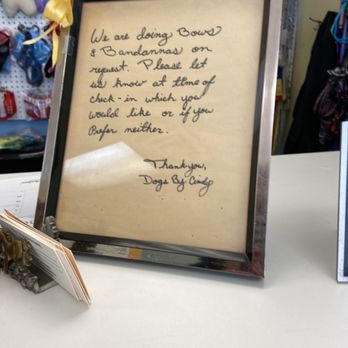 We are doing Bows
& Bandannas on
request. Please let
us know at time of
check-in which you
would like or if you
Prefer neither.
Thankyou,
Dogs By Cindy